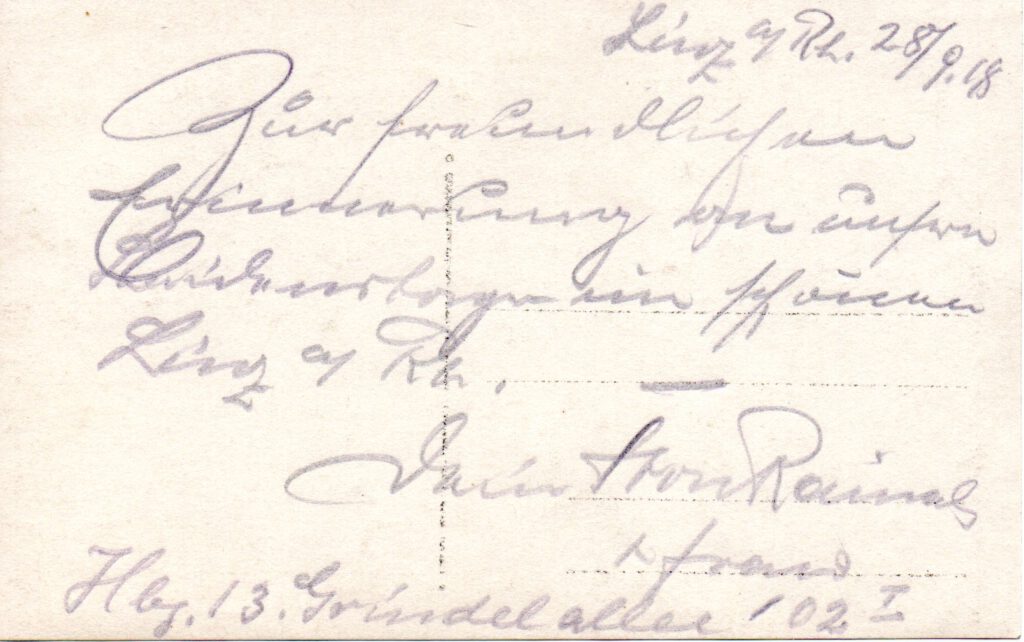 Linz a/ Rh. 28/9.18
Zur freundlichen
Erinnerung an unsere
im schönen
Linz a/ Rh.
Dein
Frau
Hbg. 13. Grindelallee 102 I